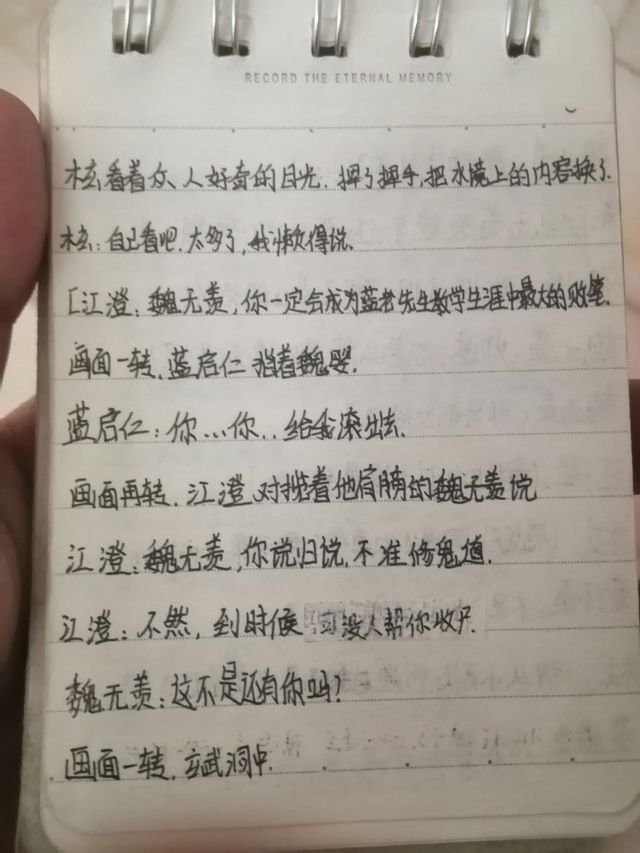 RECORD THE ETERNAL MEMORY
木玄看着众人好奇的目光.挥了挥手,把水境上的内容换了.
木玄:自己看吧.太多了,我懒得说.
[江澄:魏无羡,你一定会成为蓝老先生教学生涯中最大的败笔.
画面一转.蓝启仁指着魏婴.
蓝启仁:你...你..给我滚出去.
画面再转.江澄对揽着他肩膀的魏无羡说
江澄:魏无羡,你说归说,不准修鬼道.
江澄:不然,到时候,可没人帮你收尸.
魏无羡:这不是还有你吗?
画面一转.玄武洞中.